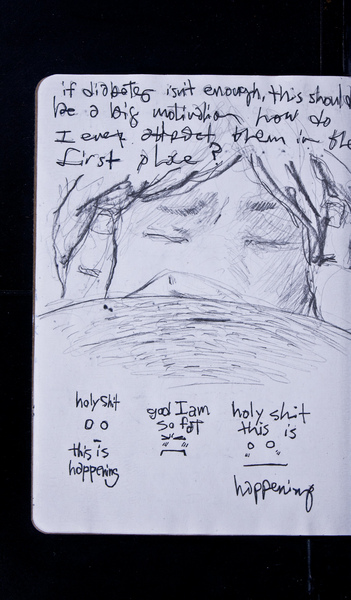 if diabetes isn't enough, this should
be a big motivation how do
I even attract them in the
first place?
holy shit
this is
happening
god I am
so fat
holy shit
this is
happening